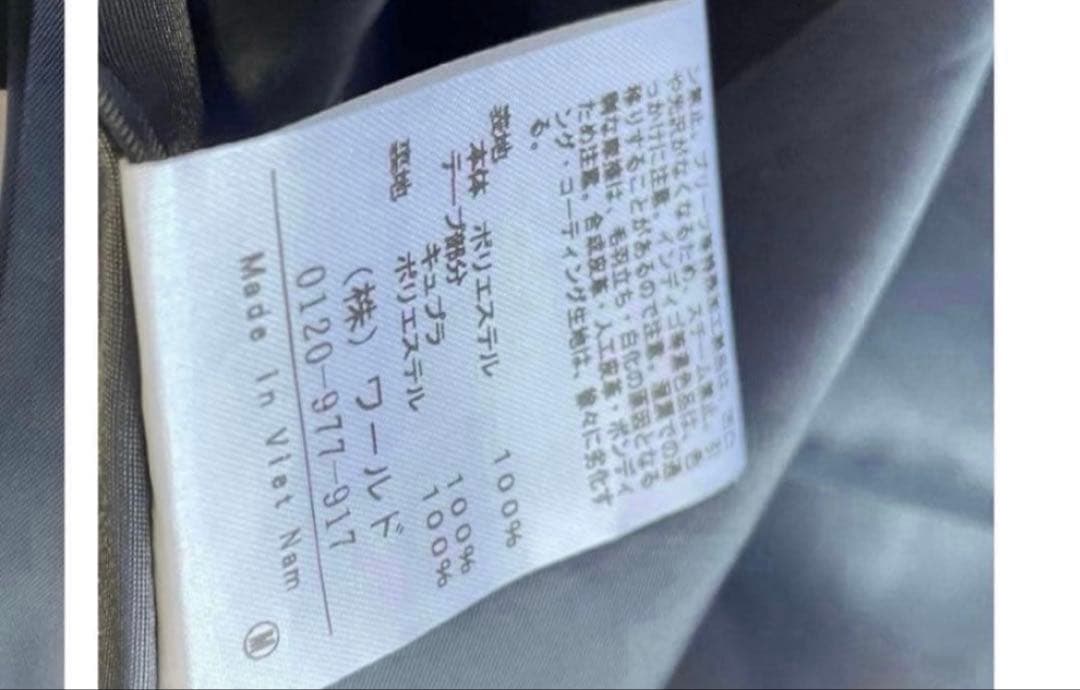 ン禁止。プリーツ
や光沢がなくなるため、スチーム禁止。引
っかけに注意。インディゴ染濃色品は、色
移りすることがあるので注意。着用での過
酷な摩擦は、毛羽立ち・白化の原因となる
ため注意。合成皮革・人工皮革・ボンディ
ング・コーティング生地は、徐々に劣化す
る。
表地 本体 ポリエステル 100%
テープ部分 キュプラ 100%
裏地 ポリエステル 100%
(株) ワールド
0120-977-917
Made In Viet Nam
M